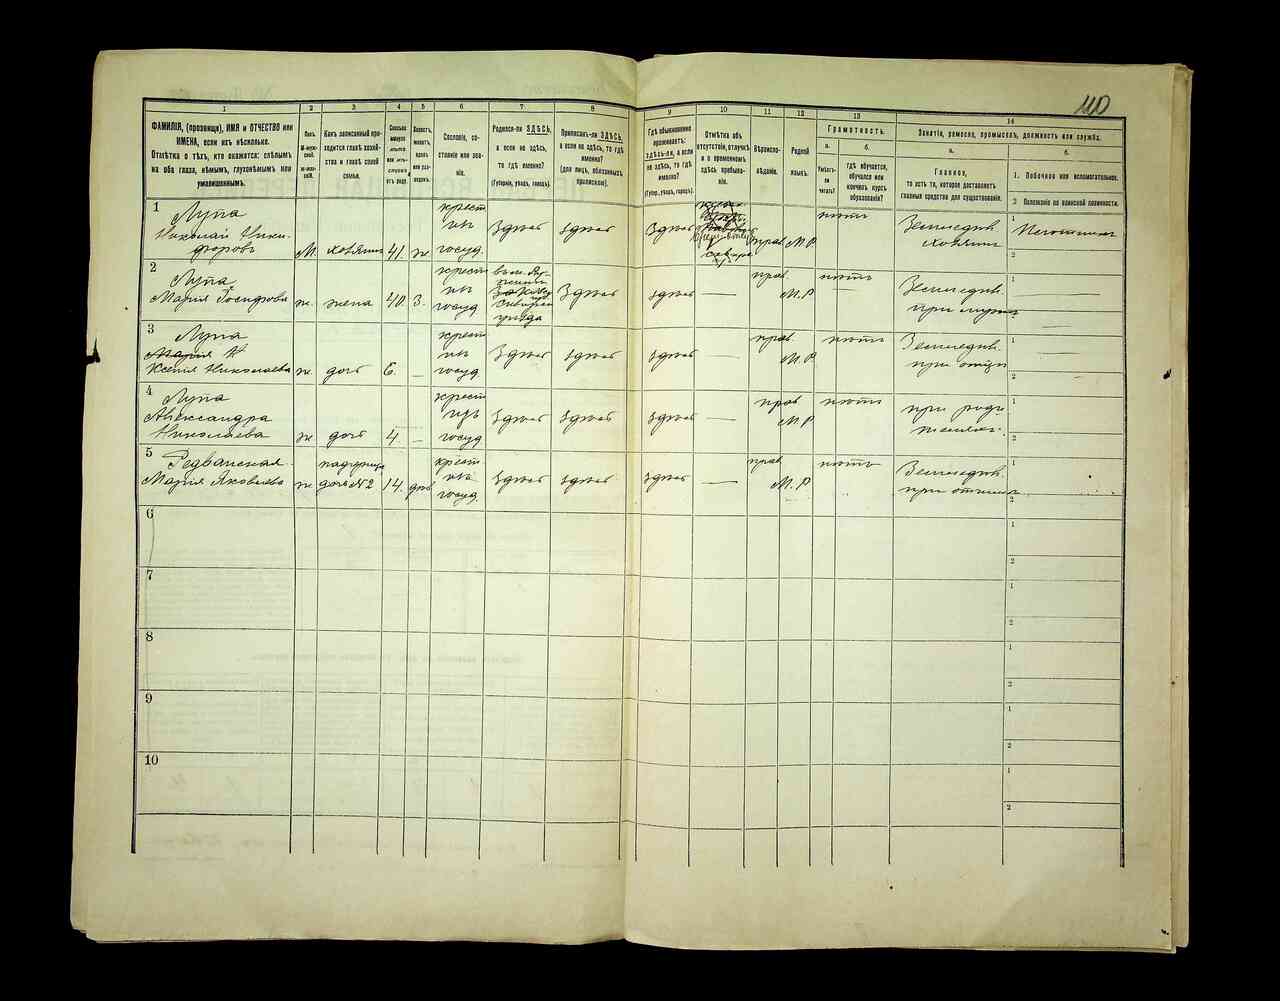 110
1 2 3 4 5 6 7 8 9 10 11 12 13 14
ФАМИЛІЯ, (прозвище), ИМЯ и ОТЧЕСТВО или
ИМЕНА, если ихъ нѣсколько.
Отмѣтка о тѣхъ, кто окажется: слѣпымъ
на оба глаза, нѣмымъ, глухонѣмымъ или
умалишеннымъ.
Полъ.
М-муж-
ской.
Ж-жен-
скій.
Какъ записанный при-
ходится главѣ хозяй-
ства и главѣ своей
семьи.
Сколько
минуло
лѣтъ
отъ роду.
Холостъ,
женатъ,
вдовъ
или раз-
веденъ.
Сословіе, со-
стояніе или зва-
ніе.
Родился-ли ЗДѢСЬ,
а если не здѣсь,
то гдѣ именно?
(Губернія, уѣздъ, городъ).
Приписанъ-ли ЗДѢСЬ,
а если не здѣсь, то гдѣ
именно?
(для лицъ, обязанныхъ
припискою).
Гдѣ обыкновенно
проживаетъ:
ЗДѢСЬ-ЛИ, а если
не здѣсь, то гдѣ
именно?
(Губерн., уѣздъ, городъ).
Отмѣтка объ
отсутствіи, отлучкѣ
и о временномъ
здѣсь пребыва-
ніи.
Вѣроиспо-
вѣданіе.
Родной
языкъ.
Грамотность.
а.
Умѣетъ-
ли
читать?
б.
гдѣ обучается,
обучался или
кончилъ курсъ
образованія?
Занятіе, ремесло, промыселъ, должность или служба.
а.
Главное,
то есть то, которое доставляетъ
главныя средства для существованія.
б.
1. Побочное или вспомогательное.
2. Положеніе по воинской повинности.
1
Лупа
Николай Ники-
форовъ
М. хозяинъ 41. ж.
крест
изъ
госуд.
Здѣсь здѣсь Здѣсь
прав М.Р
нѣтъ
Земледѣл.
хозяинъ
1
2
2
Лупа
Мария Іосифова
ж. жена 40. 3.
крест
изъ
госуд
уѣзда
Здѣсь здѣсь —
прав.
М.Р
нѣтъ
—
Земледѣл.
при мужѣ
1 —
2 —
3
Лупа
Мария Н
Ксения Николаева
ж. дочь 6. —
крест
изъ
госуд.
Здѣсь здѣсь здѣсь —
прав.
М.Р
нѣтъ
Земледѣл.
при отцѣ
1 —
2
4
Лупа
Александра
Николаева
ж. дочь 4 —
крест
изъ
госуд
Здѣсь здѣсь здѣсь —
прав
М.Р
нѣтъ
при роди
теляхъ.
1
2
5
Редванская
Мария Яковлева
ж
падчерица
дочь №2
14. дѣв.
крест
изъ
госуд.
Здѣсь здѣсь здѣсь —
прав.
М.Р
нѣтъ
Земледѣл.
при отчимѣ
1
2
6
1
2
7
1
2
8
1
2
9
1
2
10
1
2